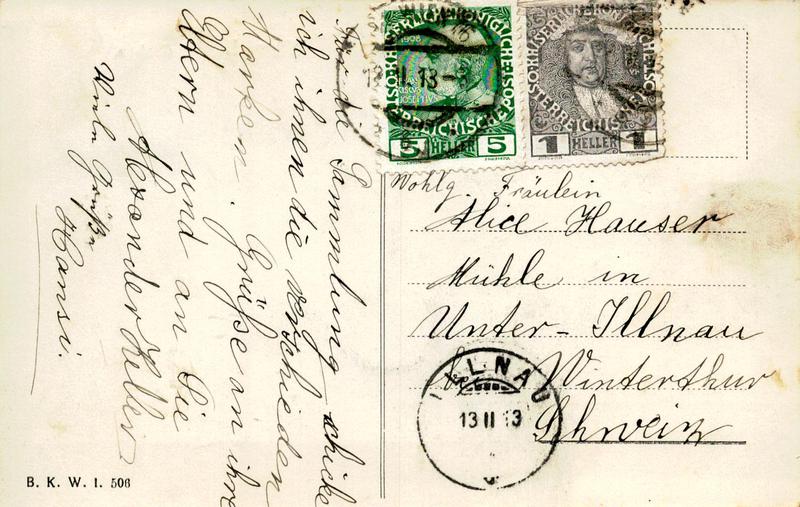 Für die Sammlung schicke
ich ihnen die verschieden
Marken. Grüße an ihre
Eltern und an Sie
Alexander Keller
Viele Grüße
Hansi.
B. K. W. I. 506
1908
KAISERLICH KÖNIGLICHE
ÖSTERREICHISCHE POST
5 HELLER 5
13 II 13
KAISERLICH KÖNIGLICHE
ÖSTERREICHISCHE POST
1 HELLER 1
Wohlg. Fräulein
Alice Hauser
Mühle in
Unter-Illnau
bei Winterthur
Schweiz
ILLNAU
13 II 13